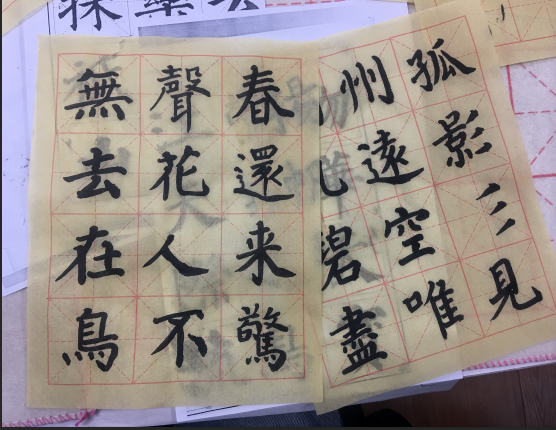 孤影見
州遠空唯
碧盡
春還来驚
聲花人不
無去在鳥